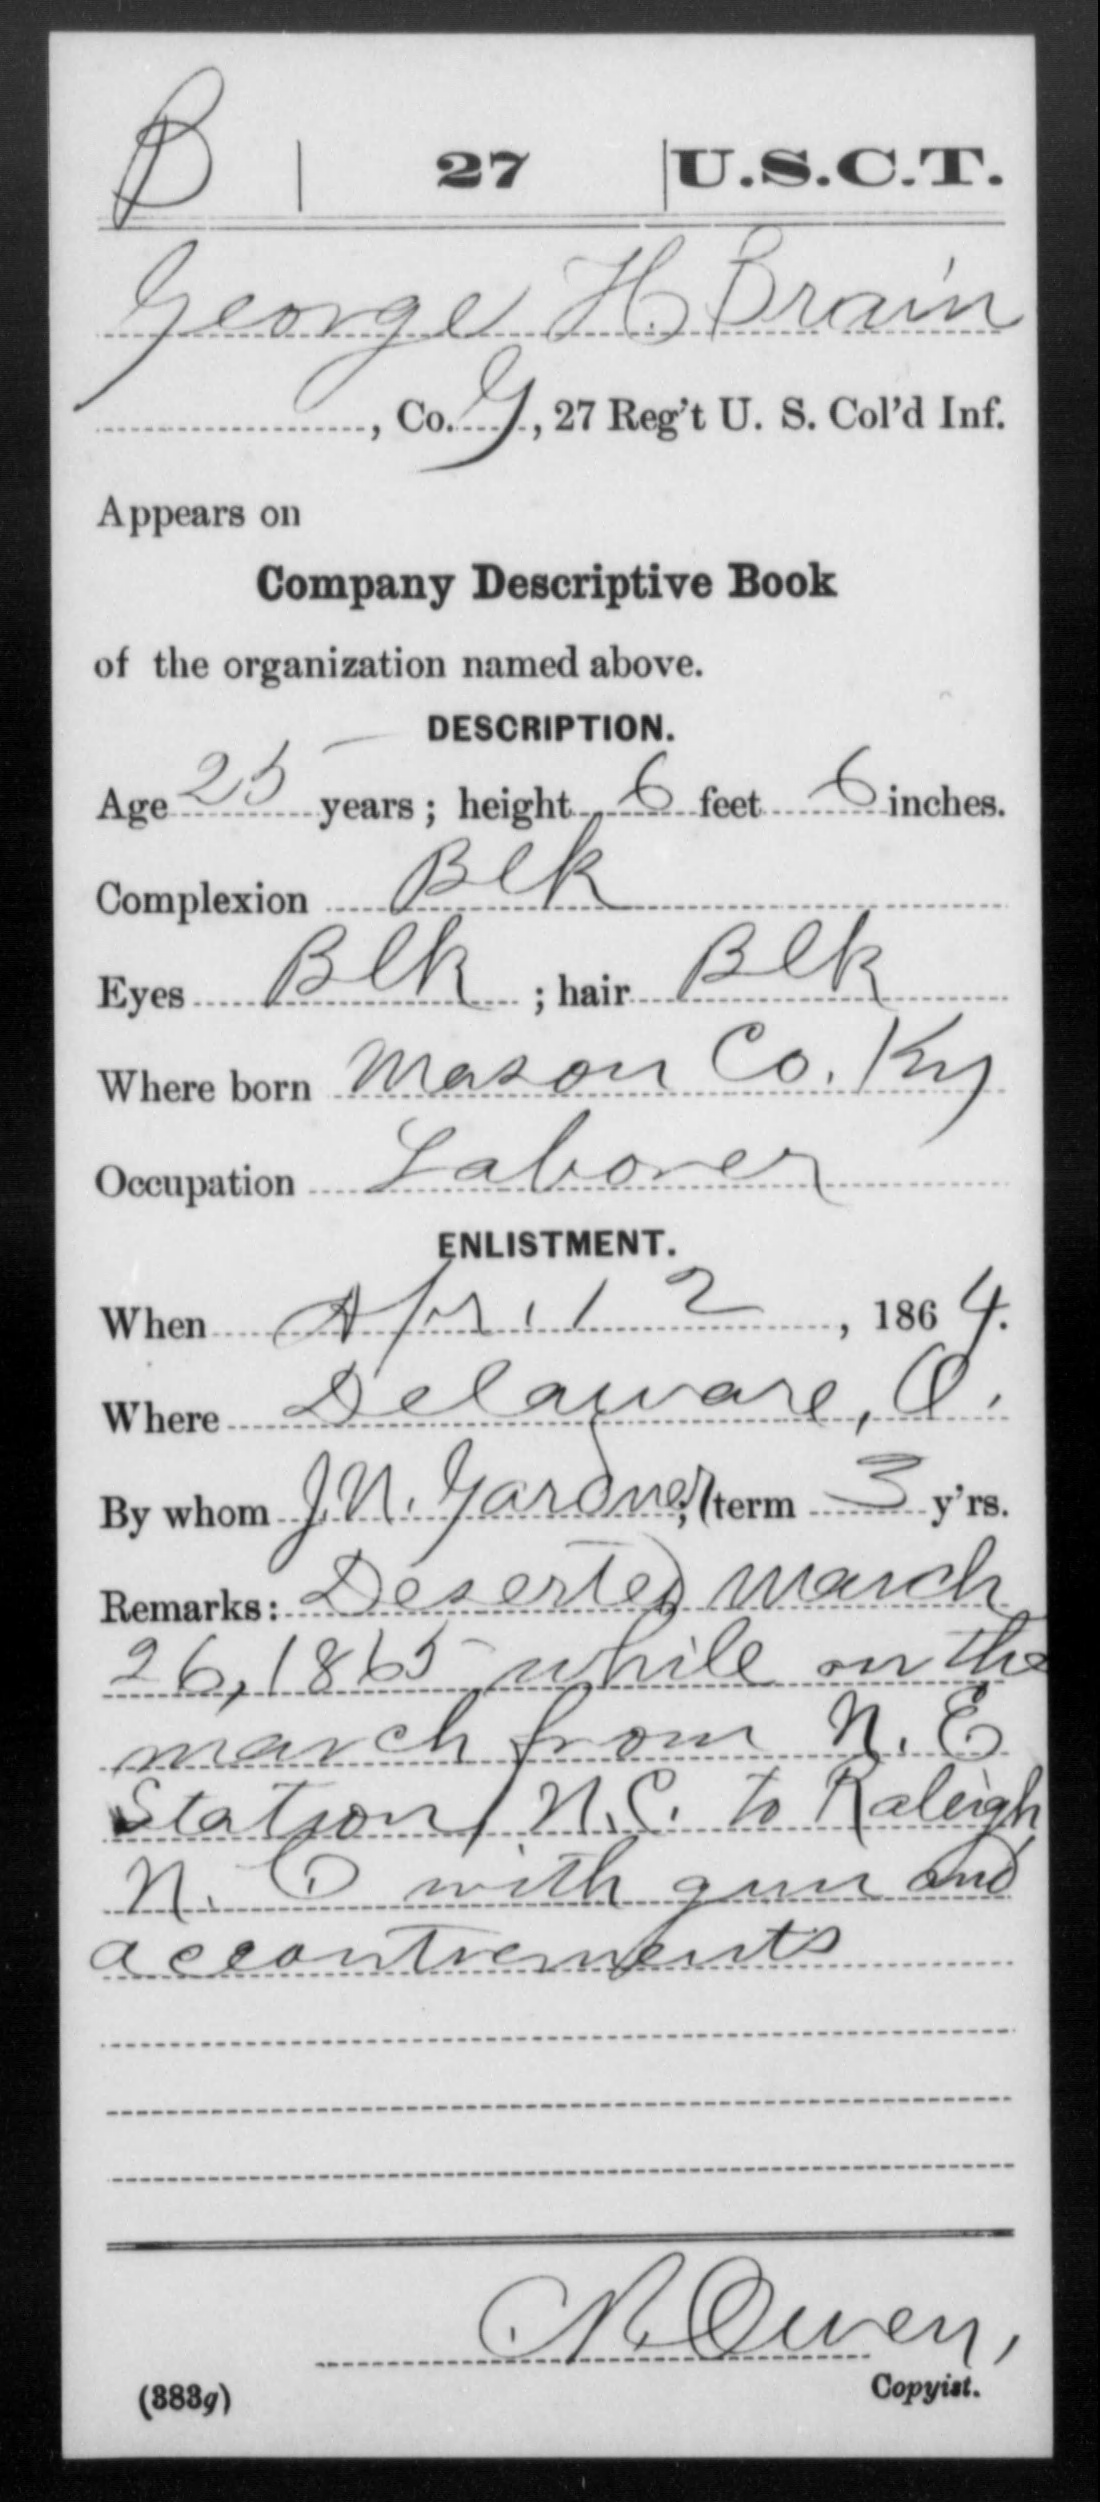 B | 27 | U.S.C.T.
George H. Brain
, Co. G, 27 Reg't U. S. Col'd Inf.
Appears on
Company Descriptive Book
of the organization named above.
DESCRIPTION.
Age 25 years; height 6 feet 6 inches.
Complexion Blk
Eyes Blk ; hair Blk
Where born Mason Co. Ky
Occupation Laborer
ENLISTMENT.
When April 2, 1864.
Where Delaware, O.
By whom J.N. Gardner; term 3 y'rs.
Remarks: Deserted March
26, 1865 while on the
march from N. E
Station, N.C. to Raleigh
N. C with gun and
accoutrements
Owen,
(383g) Copyist.